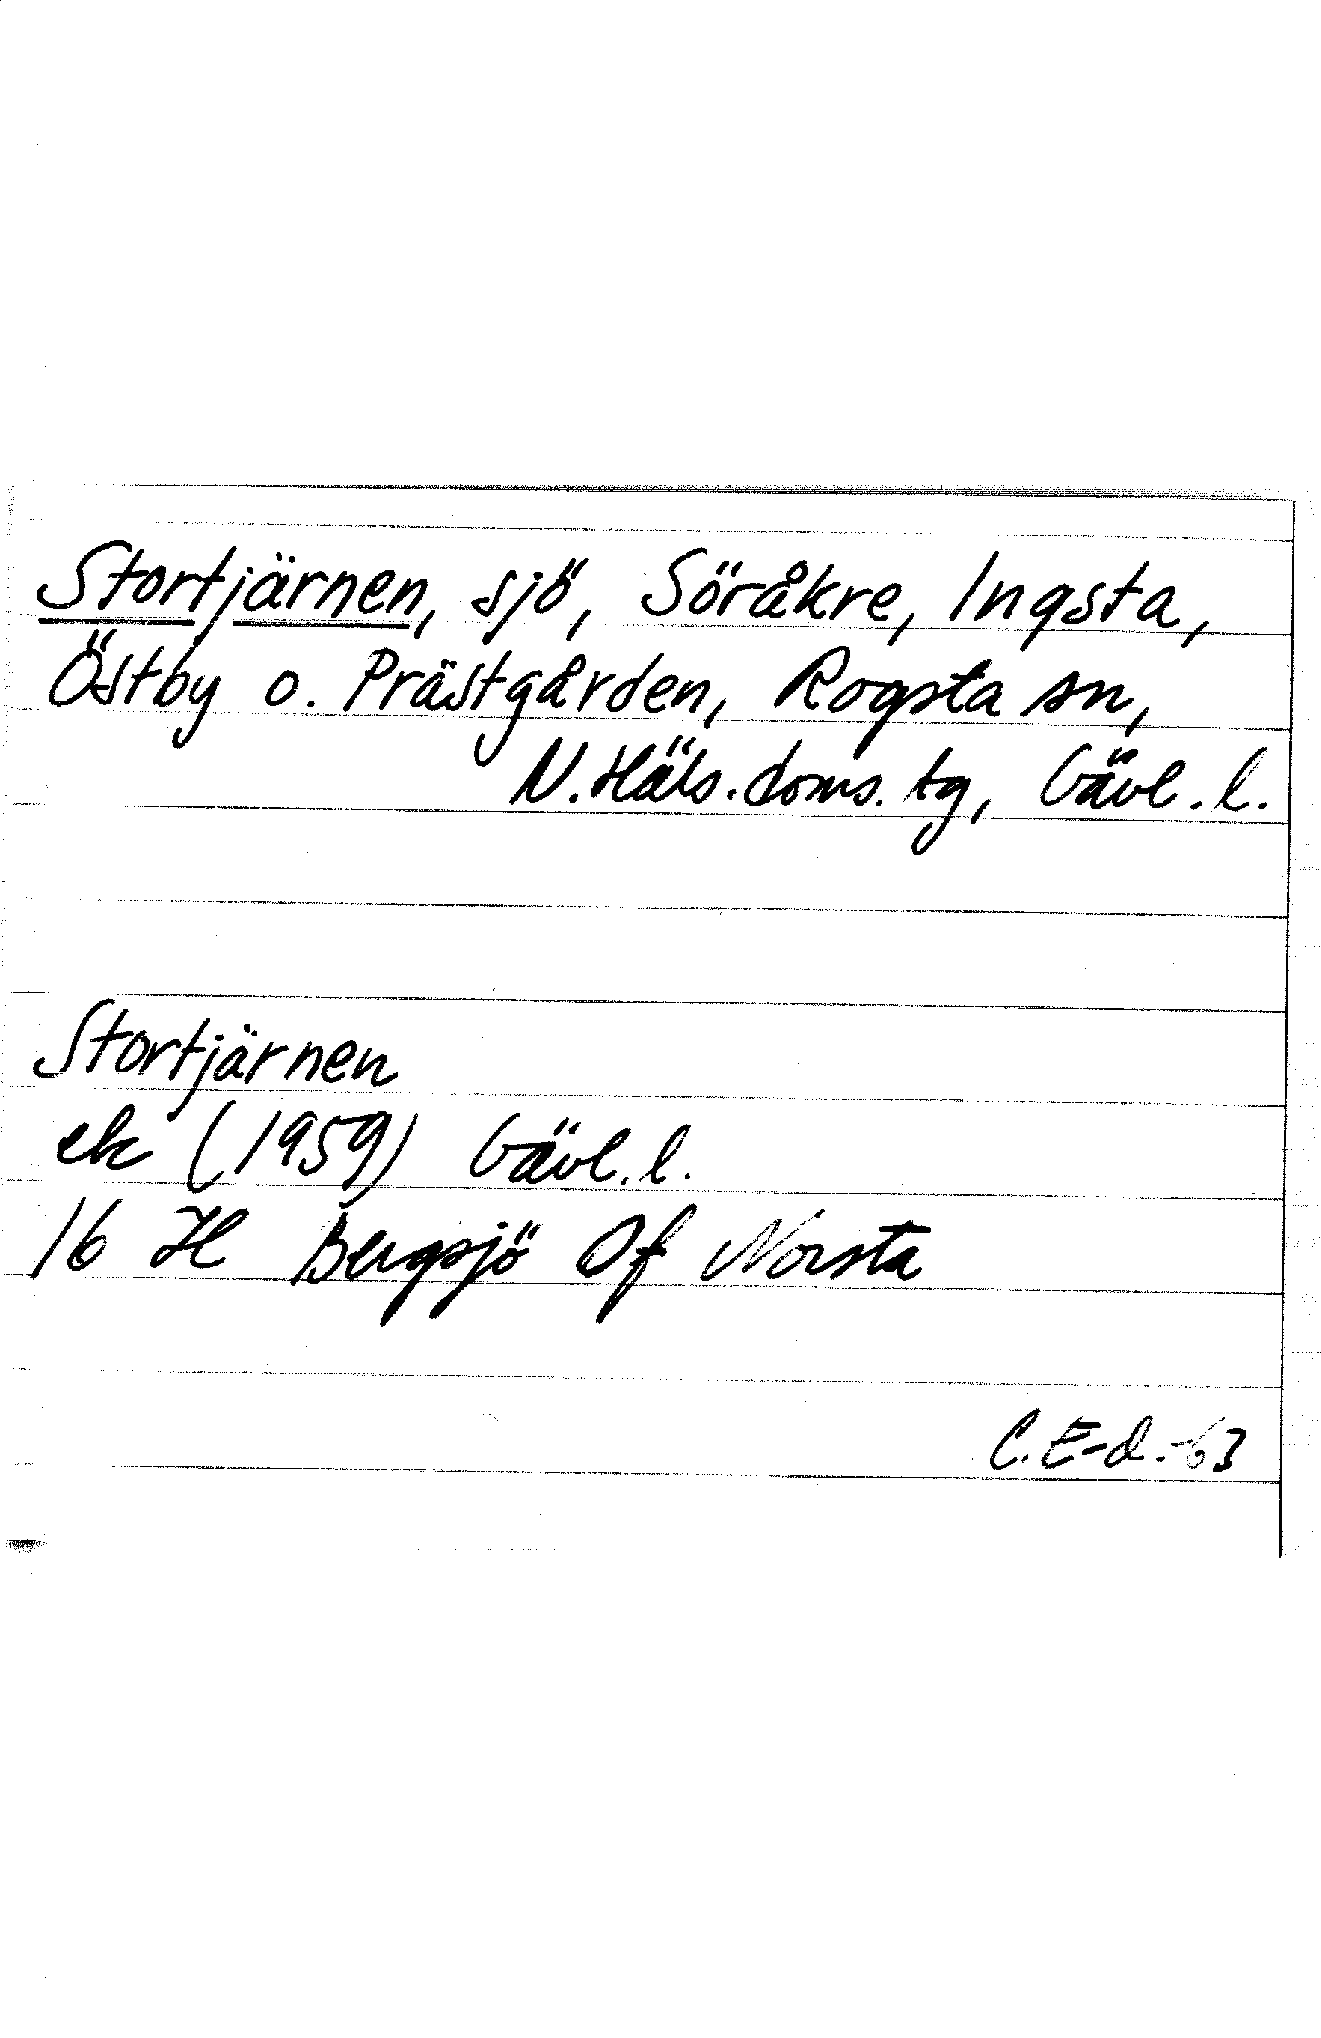 Stortjärnen, sjö, Söråkre, Ingsta,
Östby o. Prästgården, Rogsta sn,
N. Häls. doms. tg, Gävl. l.
Stortjärnen
ek (1959) Gävl. l.
16 H Bergsjö Of Norsta
C. E-d. -63